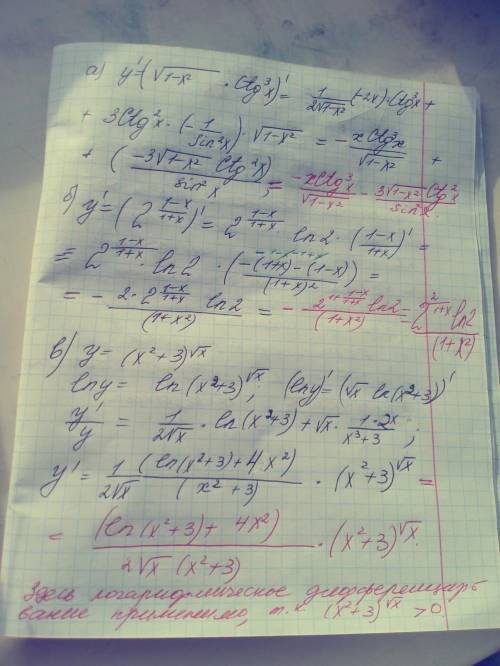 а) y' = (√1-x² · Ctg³x)' = 1/(2√1-x²) (-2x) · Ctg³x +
+ 3Ctg²x · (-1/sin²x) · √1-x² = - xCtg³x/√1-x² +
+ (-3√1-x² Ctg²x / sin²x) = - xCtg³x/√1-x² - 3√1-x² Ctg²x / sin²x.
б) y' = (2^((1-x)/(1+x)))' = 2^((1-x)/(1+x)) ln2 · ((1-x)/(1+x))' =
= 2^((1-x)/(1+x)) · ln2 · (-(1+x)-(1-x) / (1+x)²) =
= - 2·2^((1-x)/(1+x)) ln2 / (1+x²) = - 2^(1+(1-x)/(1+x)) ln2 / (1+x²) = 2^(2/(1+x)) ln2 / (1+x²)
в) y = (x²+3)^√x
lny = ln(x²+3)^√x, (lny)' = (√x ln(x²+3))'
y'/y = 1/(2√x) · ln(x²+3) + √x · 1·2x/(x³+3) ;
y' = 1/(2√x) (ln(x²+3)+4x²)/(x²+3) · (x²+3)^√x =
= (ln(x²+3) + 4x²) / (2√x (x²+3)) · (x²+3)^√x.
Здесь логарифмическое дифференциро-
вание применимо, т.к (x²+3)^√x > 0